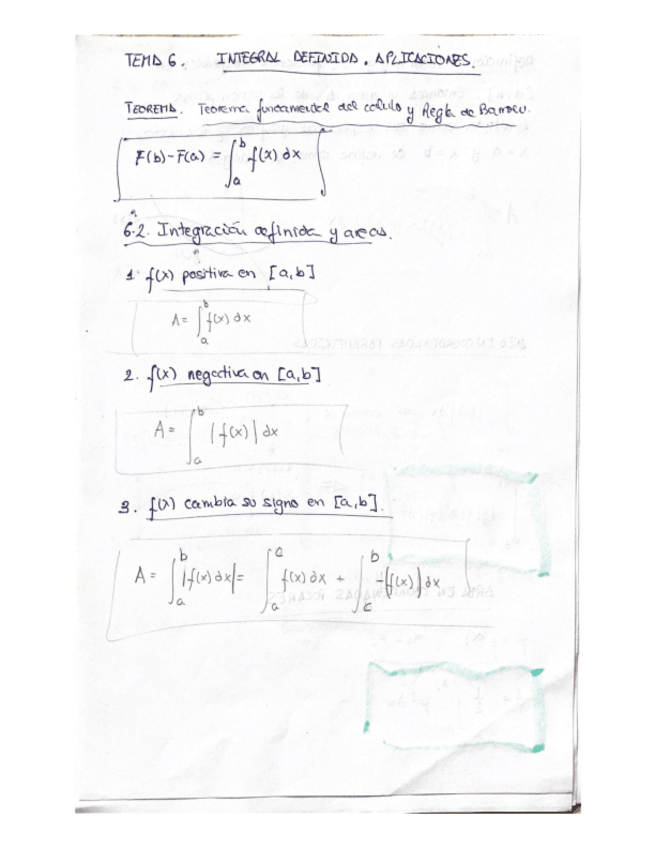 TEMA 6. INTEGRAL DEFINIDA. APLICACIONES.
TEOREMA. Teorema fundamental del calculo y Regla de Barrow.
F(b)-F(a) = ∫_a^b f(x) dx
6.2. Integración definida y areas.
1. f(x) positiva en [a,b]
A = ∫_a^b f(x) dx
2. f(x) negativa en [a,b]
A = ∫_a^b |f(x)| dx
3. f(x) cambia su signo en [a,b].
A = ∫_a^b |f(x) dx| = ∫_a^c f(x) dx + ∫_c^b -|f(x)| dx